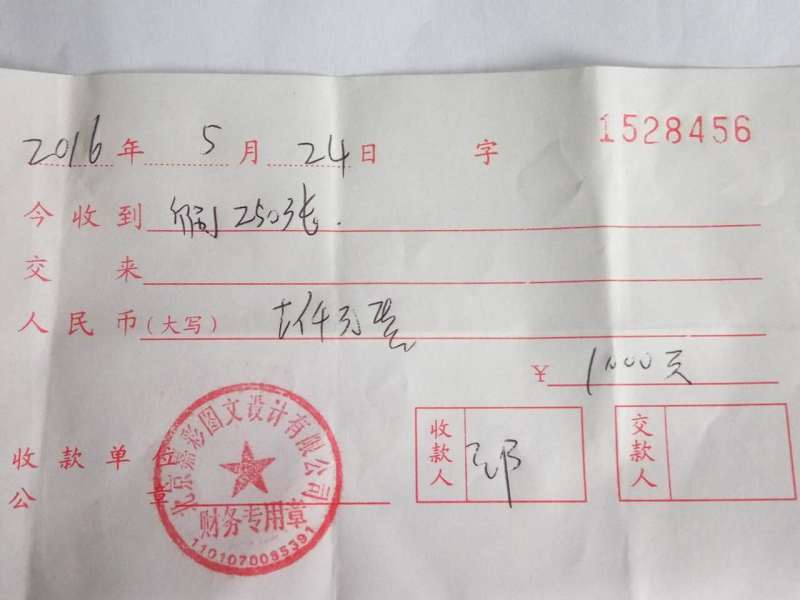 2016年5月24日 字 1528456
今收到 印刷250张.
交来
人民币(大写) 壹仟
¥ 1000元
收款单位
公章
收款人
交款人
北京嘉彩图文设计有限公司
财务专用章
1101070085391